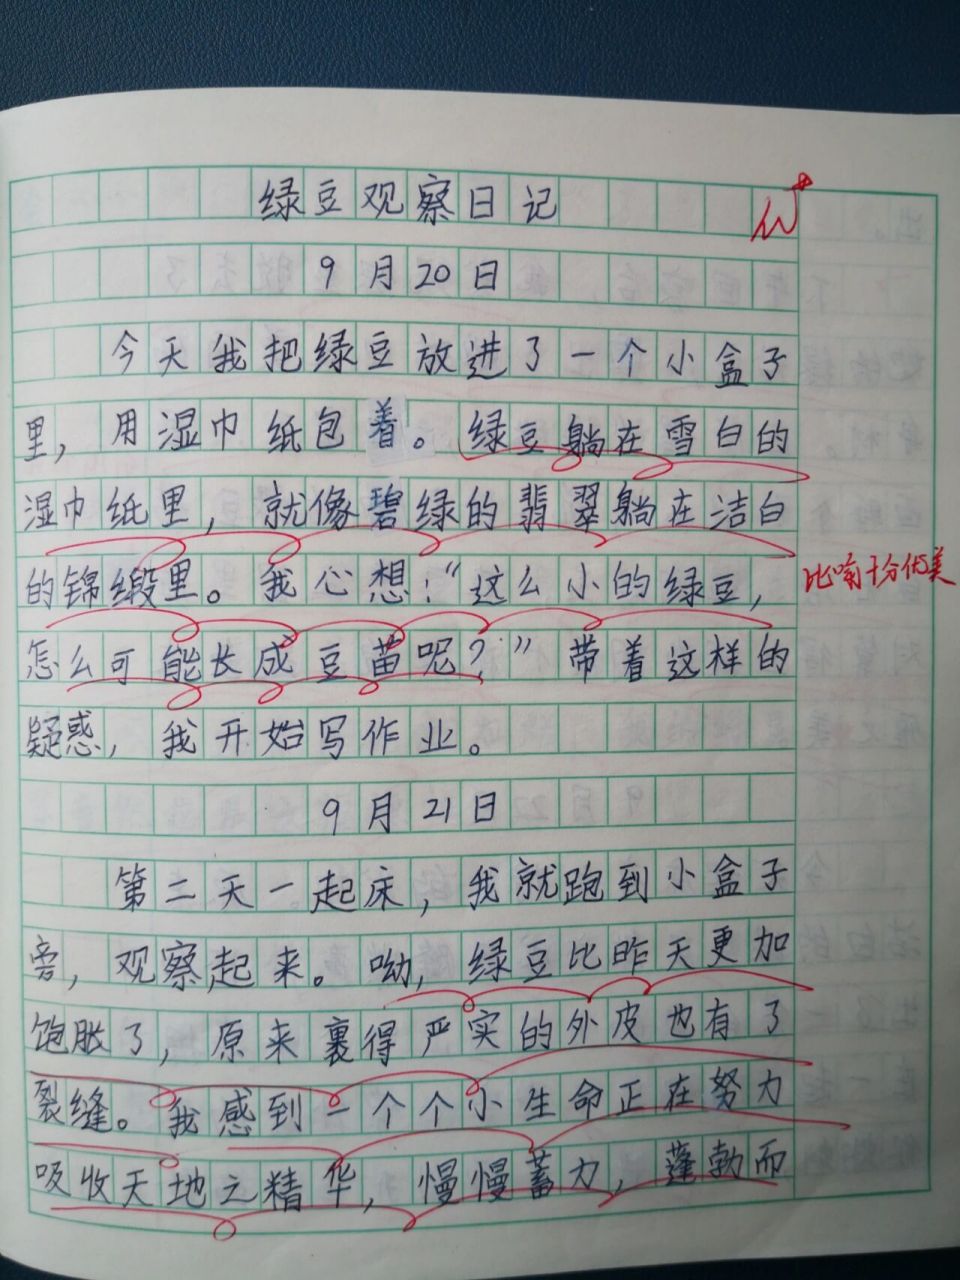 绿豆观察日记
优+
9月20日
今天我把绿豆放进了一个小盒子
里，用湿巾纸包着。绿豆躺在雪白的
湿巾纸里，就像碧绿的翡翠躺在洁白
的锦缎里。我心想：“这么小的绿豆，
比喻十分优美
怎么可能长成豆苗呢？”带着这样的
疑惑，我开始写作业。
9月21日
第二天一起床，我就跑到小盒子
旁，观察起来。呦，绿豆比昨天更加
饱胀了，原来裹得严实的外皮也有了
裂缝。我感到一个个小生命正在努力
吸收天地之精华，慢慢蓄力，蓬勃而